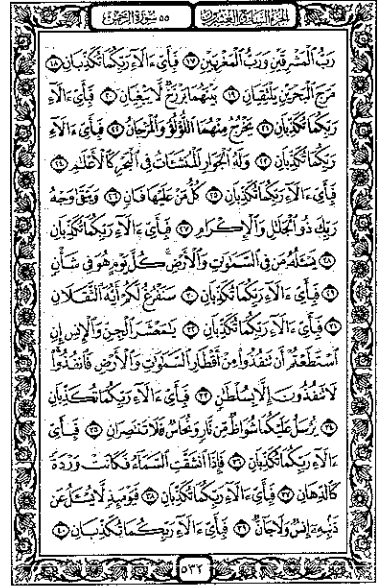 الجزء السابع والعشرون ٥٥ سورة الرحمن
رَبُّ ٱلْمَشْرِقَيْنِ وَرَبُّ ٱلْمَغْرِبَيْنِ ١٧ فَبِأَىِّ ءَالَآءِ رَبِّكُمَا تُكَذِّبَانِ ١٨
مَرَجَ ٱلْبَحْرَيْنِ يَلْتَقِيَانِ ١٩ بَيْنَهُمَا بَرْزَخٌ لَّا يَبْغِيَانِ ٢٠ فَبِأَىِّ ءَالَآءِ
رَبِّكُمَا تُكَذِّبَانِ ٢١ يَخْرُجُ مِنْهُمَا ٱللُّؤْلُؤُ وَٱلْمَرْجَانُ ٢٢ فَبِأَىِّ ءَالَآءِ
رَبِّكُمَا تُكَذِّبَانِ ٢٣ وَلَهُ ٱلْجَوَارِ ٱلْمُنشَـَٔاتُ فِى ٱلْبَحْرِ كَٱلْأَعْلَـٰمِ ٢٤
فَبِأَىِّ ءَالَآءِ رَبِّكُمَا تُكَذِّبَانِ ٢٥ كُلُّ مَنْ عَلَيْهَا فَانٍ ٢٦ وَيَبْقَىٰ وَجْهُ
رَبِّكَ ذُو ٱلْجَلَـٰلِ وَٱلْإِكْرَامِ ٢٧ فَبِأَىِّ ءَالَآءِ رَبِّكُمَا تُكَذِّبَانِ
٢٨ يَسْـَٔلُهُۥ مَن فِى ٱلسَّمَـٰوَٰتِ وَٱلْأَرْضِ ۚ كُلَّ يَوْمٍ هُوَ فِى شَأْنٍ
٢٩ فَبِأَىِّ ءَالَآءِ رَبِّكُمَا تُكَذِّبَانِ ٣٠ سَنَفْرُغُ لَكُمْ أَيُّهَ ٱلثَّقَلَانِ
٣١ فَبِأَىِّ ءَالَآءِ رَبِّكُمَا تُكَذِّبَانِ ٣٢ يَـٰمَعْشَرَ ٱلْجِنِّ وَٱلْإِنسِ إِنِ
ٱسْتَطَعْتُمْ أَن تَنفُذُوا۟ مِنْ أَقْطَارِ ٱلسَّمَـٰوَٰتِ وَٱلْأَرْضِ فَٱنفُذُوا۟
لَا تَنفُذُونَ إِلَّا بِسُلْطَـٰنٍ ٣٣ فَبِأَىِّ ءَالَآءِ رَبِّكُمَا تُكَذِّبَانِ
٣٤ يُرْسَلُ عَلَيْكُمَا شُوَاظٌ مِّن نَّارٍ وَنُحَاسٌ فَلَا تَنتَصِرَانِ ٣٥ فَبِأَىِّ
ءَالَآءِ رَبِّكُمَا تُكَذِّبَانِ ٣٦ فَإِذَا ٱنشَقَّتِ ٱلسَّمَآءُ فَكَانَتْ وَرْدَةً
كَٱلدِّهَانِ ٣٧ فَبِأَىِّ ءَالَآءِ رَبِّكُمَا تُكَذِّبَانِ ٣٨ فَيَوْمَئِذٍ لَّا يُسْـَٔلُ عَن
ذَنۢبِهِۦٓ إِنسٌ وَلَا جَآنٌّ ٣٩ فَبِأَىِّ ءَالَآءِ رَبِّكُمَا تُكَذِّبَانِ ٤٠
٥٣٢